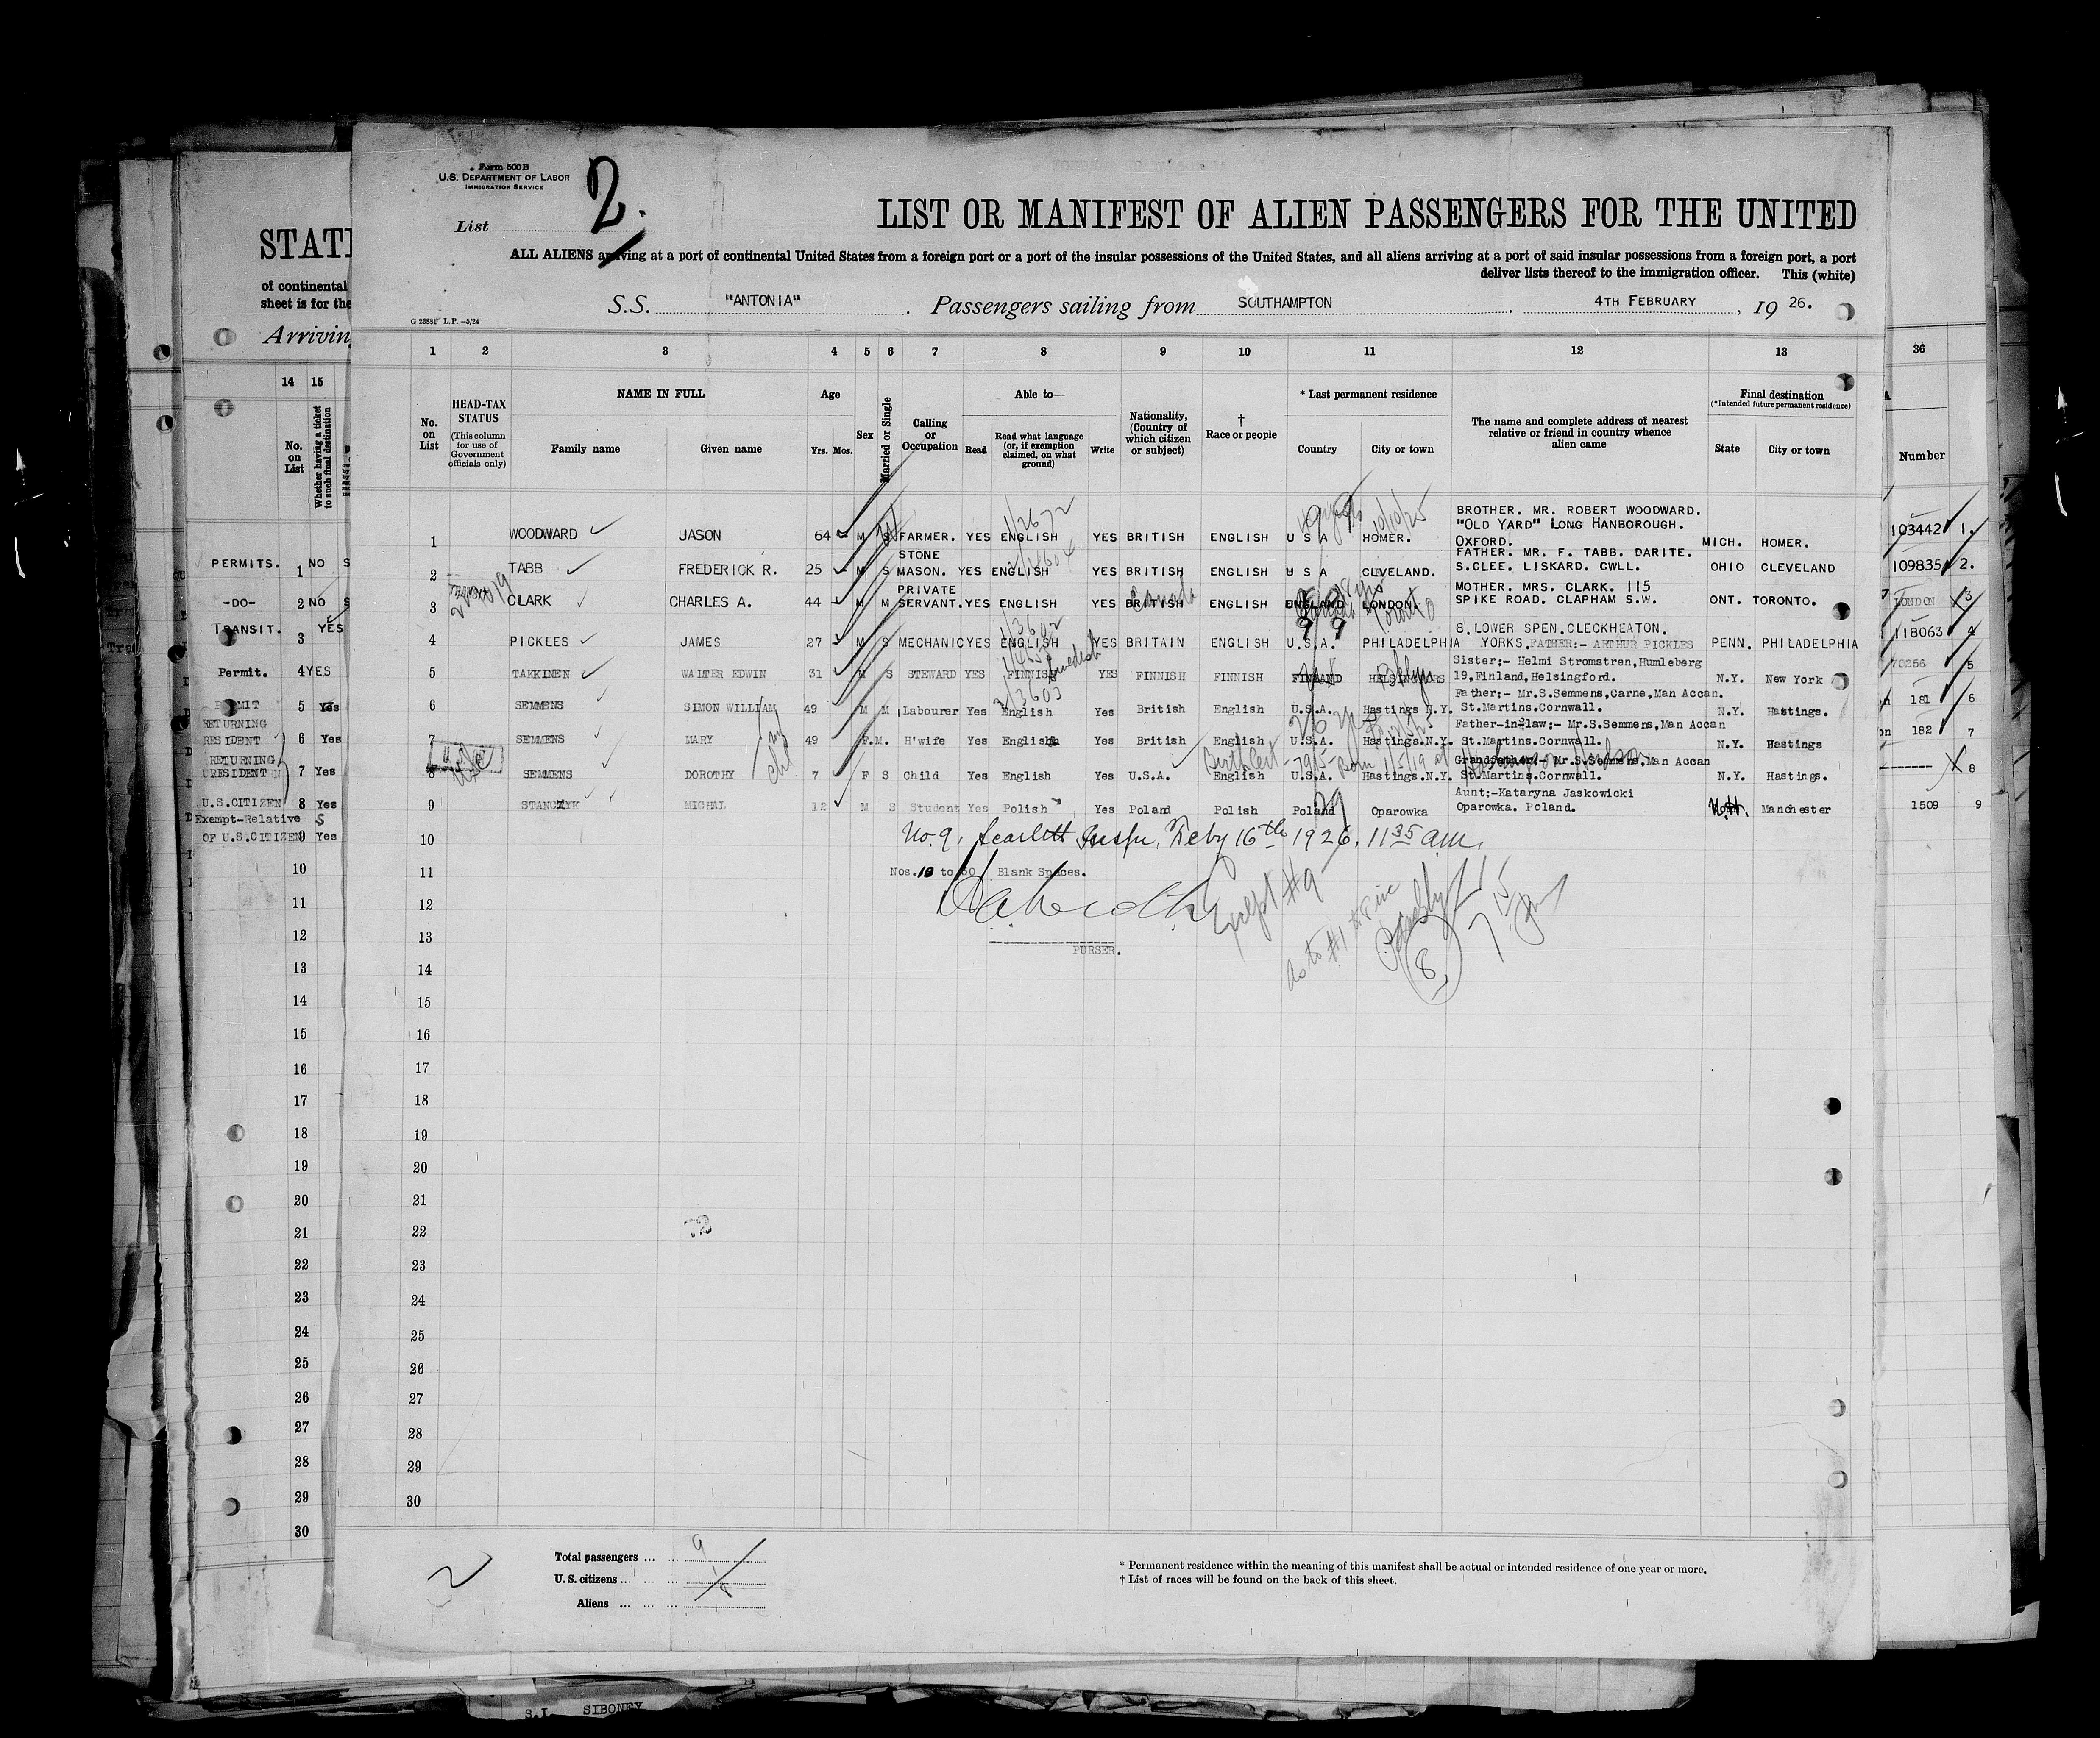 Form 500 B
U.S. DEPARTMENT OF LABOR
IMMIGRATION SERVICE
List 2.
LIST OR MANIFEST OF ALIEN PASSENGERS FOR THE UNITED
ALL ALIENS arriving at a port of continental United States from a foreign port or a port of the insular possessions of the United States, and all aliens arriving at a port of said insular possessions from a foreign port, a port
deliver lists thereof to the immigration officer. This (white)
S.S. "ANTONIA" . Passengers sailing from SOUTHAMPTON . 4TH FEBRUARY , 19 26.
G 23881 L.P. —5/24
1 2 3 4 5 6 7 8 9 10 11 12 13
No. on List
HEAD-TAX STATUS
(This column for use of Government officials only)
NAME IN FULL
Family name Given name
Age
Yrs. Mos.
Sex
Married or Single
Calling or Occupation
Able to—
Read
Read what language (or, if exemption claimed, on what ground)
Write
Nationality, (Country of which citizen or subject)
† Race or people
* Last permanent residence
Country City or town
The name and complete address of nearest relative or friend in country whence alien came
Final destination
(*Intended future permanent residence)
State City or town
1 WOODWARD JASON 64 M S FARMER. YES ENGLISH YES BRITISH ENGLISH U S A HOMER. BROTHER. MR. ROBERT WOODWARD. "OLD YARD" LONG HANBOROUGH. OXFORD. MICH. HOMER.
2 TABB FREDERICK R. 25 M S STONE MASON. YES ENGLISH YES BRITISH ENGLISH U S A CLEVELAND. FATHER. MR. F. TABB. DARITE. S.CLEE. LISKARD. CWLL. OHIO CLEVELAND
3 CLARK CHARLES A. 44 M M PRIVATE SERVANT. YES ENGLISH YES BRITISH Canada ENGLISH ENGLAND LONDON MOTHER. MRS. CLARK. 115 SPIKE ROAD. CLAPHAM S.W. ONT. TORONTO.
4 PICKLES JAMES 27 M S MECHANIC YES ENGLISH YES BRITAIN ENGLISH U.S.A. PHILADELPHIA 8. LOWER SPEN. CLECKHEATON. YORKS. FATHER:- ARTHUR PICKLES PENN. PHILADELPHIA
5 TAKKINEN WALTER EDWIN 31 M S STEWARD YES FINNISH Swedish YES FINNISH FINNISH FINLAND HELSINGFORS Sister;- Helmi Stromstren, Humleberg 19, Finland, Helsingford. N.Y. New York
6 SEMMENS SIMON WILLIAM 49 M M Labourer Yes English Yes British English U.S.A. Hastings N.Y. Father;- Mr.S.Semmens, Carne, Man Accan. St.Martins.Cornwall. N.Y. Hastings.
7 SEMMENS MARY 49 F. M. H'wife Yes English Yes British English U.S.A. Hastings. N.Y. Father-in-law;- Mr.S.Semmens, Man Accan St.Martins.Cornwall. N.Y. Hastings
8 SEMMENS DOROTHY 7 F S Child Yes English Yes U.S.A. English U.S.A. Hastings.N.Y. Grandfather;- Mr.S.Semmens, Man Accan St.Martins.Cornwall. N.Y. Hastings.
9 STANCZYK MICHAL 12 M S Student Yes Polish Yes Poland Polish Poland Oparowka Aunt:-Kataryna Jaskowicki Oparowka. Poland. N.H. Manchester
10 No. 9, Scarlett Feby 16th 1926, 11 35 am.
11 Nos. 10 to 30 Blank Spaces.
12 Except #9
13 PURSER.
14
15
16
17
18
19
20
21
22
23
24
25
26
27
28
29
30
Total passengers ... ... 9
U. S. citizens ... ... ...
Aliens ... ... ...
* Permanent residence within the meaning of this manifest shall be actual or intended residence of one year or more.
† List of races will be found on the back of this sheet.
STAT
of continental
sheet is for the
Arrivin
14 15
No. on List
Whether having a ticket to such final destination
PERMITS. 1 NO S
-DO- 2 NO S
TRANSIT. 3 YES
Permit. 4 YES
PERMIT 5 Yes
RETURNING RESIDENT 6 Yes
RETURNING RESIDENT 7 Yes
U.S.CITIZEN 8 Yes
Exempt-Relative OF U.S.CITIZEN 9 Yes
10
11
12
13
14
15
16
17
18
19
20
21
22
23
24
25
26
27
28
29
30
36
Number
103442 1.
109835 2.
LONDON 3
118063 4
70256 5
181 6
182 7
8
1509 9
S.I. SIBONEY